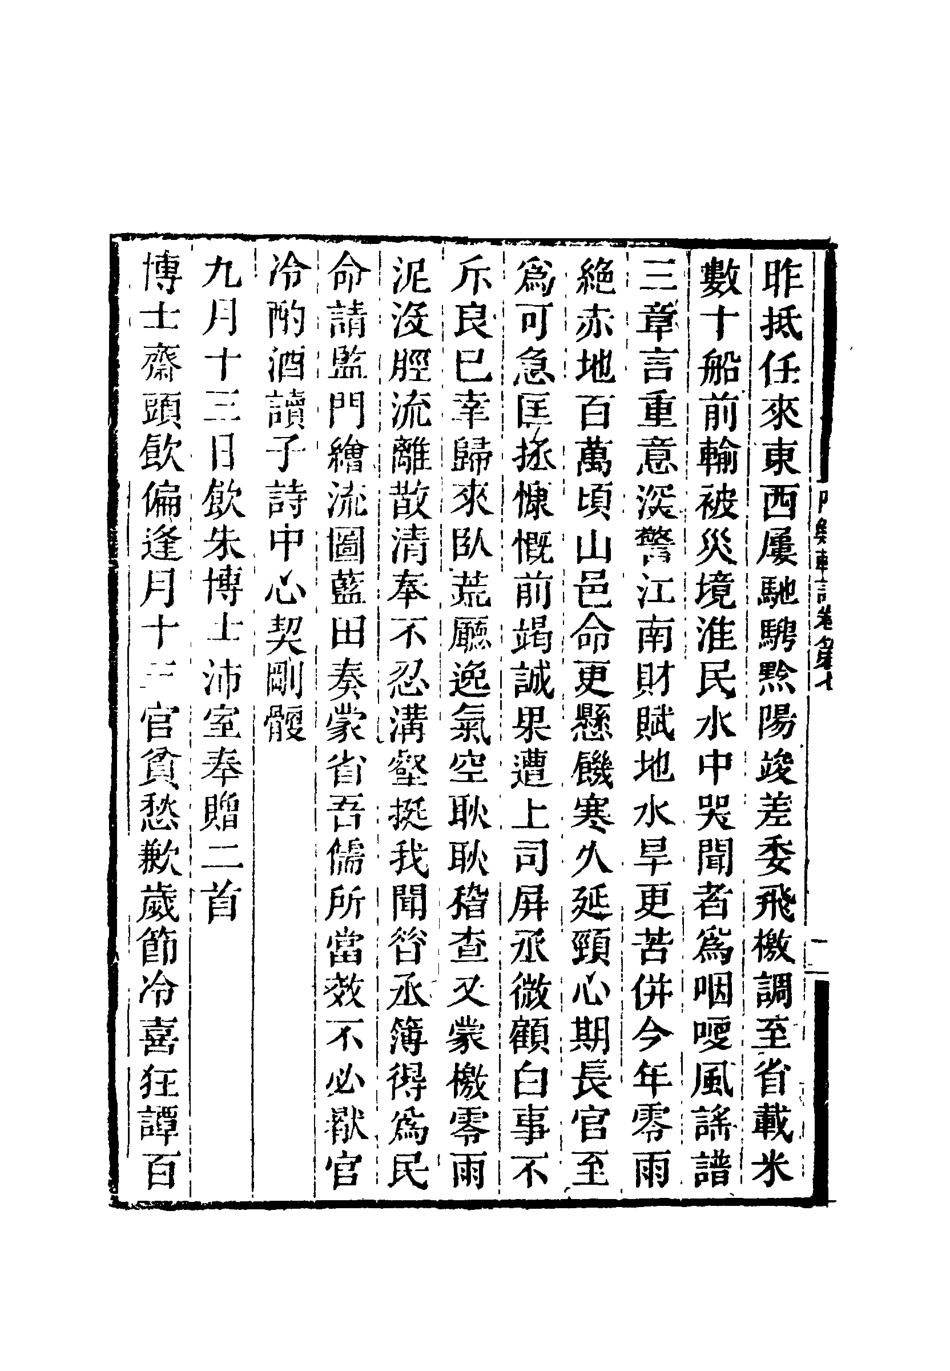 昨抵任來東西屢馳騁黔陽竣差委飛檄調至省載米
數十船前輸被災境淮民水中哭聞者爲咽哽風謠譜
三章言重意深警江南財賦地水旱更苦併今年零雨
絕赤地百萬頃山邑命更懸饑寒久延頸心期長官至
爲可急匡拯慷慨前竭誠果遭上司屏丞微顧白事不
斥良已幸歸來臥荒廳逸氣空耿耿稽查又蒙檄零雨
泥沒脛流離散清奉不忍溝壑挺我聞咎丞簿得爲民
命請監門繪流圖藍田奏蒙省吾儒所當效不必猒官
冷酌酒讀子詩中心契剛鯁
九月十三日飲朱博士沛室奉贈二首
博士齋頭飲偏逢月十三官貧愁歉歲節冷喜狂譚百
軒詩卷第七
二